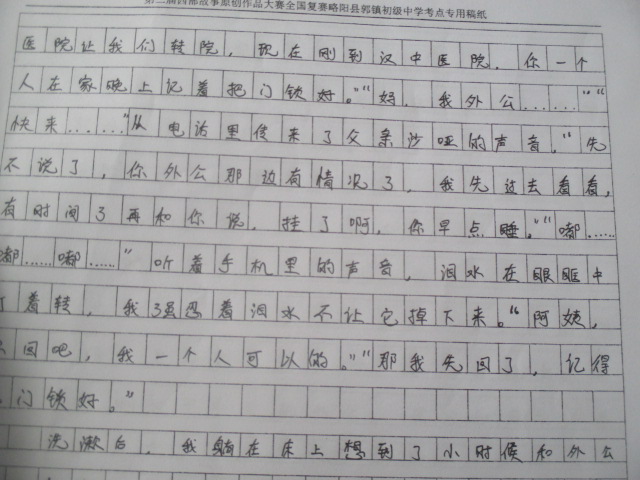 第二届西部故事原创作品大赛全国复赛略阳县郭镇初级中学考点专用稿纸
医院让我们转院，现在刚到汉中医院，你一个
人在家晚上记着把门锁好。”“妈，我外公……”“
快来……”从电话里传来了父亲沙哑的声音，“先
不说了，你外公那边有情况了，我先过去看看，
有时间了再和你说，挂了啊，你早点睡。”“嘟……
嘟……嘟……”听着手机里的声音，泪水在眼眶中
打着转，我强忍着泪水不让它掉下来。“阿姨，
回吧，我一个人可以的。”“那我先回了，记得
门锁好。”
洗漱后，我躺在床上想到了小时候和外公